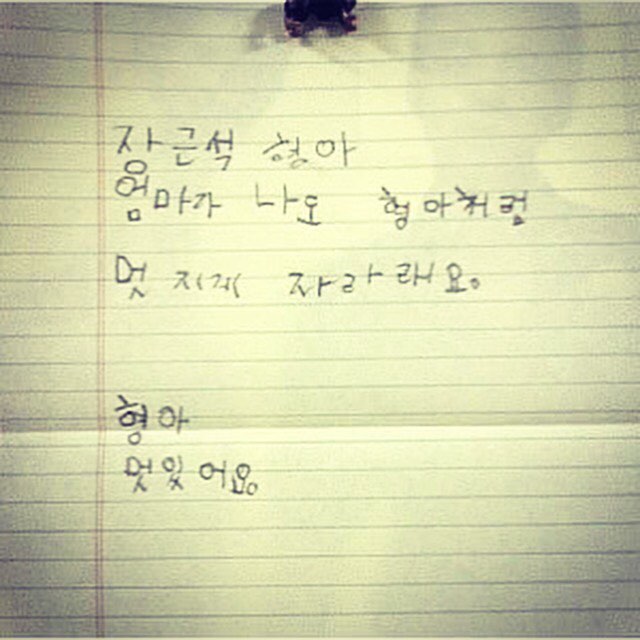 장근석 형아
엄마가 나오 형아처럼
멋지게 자라래요.
형아
멋있어요.